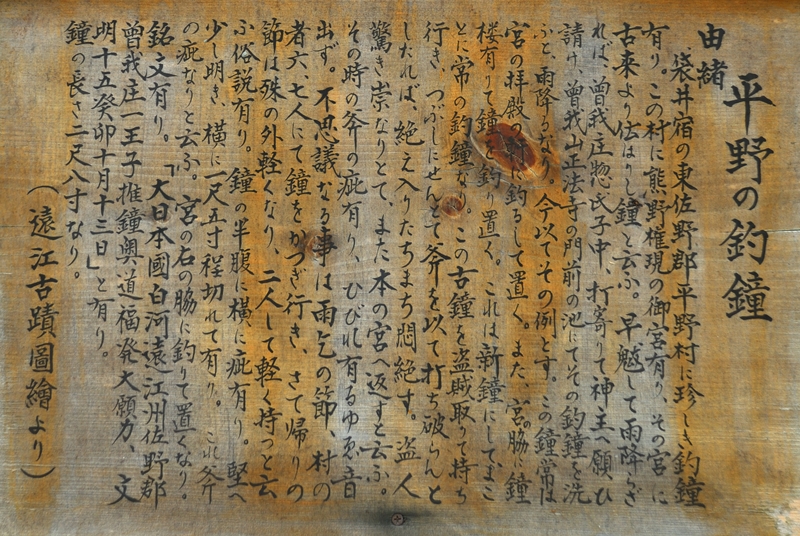 平野の釣鐘
由緒
袋井宿の東佐野郡平野村に珍しき釣鐘
有り。この村に熊野権現の御宮有り、その宮に
古来より伝はりし鐘と云ふ。旱魃して雨降らざ
れば、曽我庄惣氏子中、打寄りて神主へ願ひ
請け、曽我山正法寺の門前の池にてその釣鐘を洗
ふと、雨降るなり。今以てその例とす。この鐘常は
宮の拝殿の に釣るして置く。また、宮の脇に鐘
楼有りて鐘 釣り置く。これは新鐘にしてまこ
とに常の釣鐘なり。この古鐘を盗賊取りて持ち
行き、つぶしにせんとて斧を以て打ち破らんと
したれば、絶え入りたちまち悶絶す。盗人
驚き祟なりとて、また本の宮へ返すと云ふ。
その時の斧の疵有り、ひびれ有るゆゑ音
出ず。不思議なる事は雨乞の節、村の
者六、七人にて鐘をかつぎ行き、さて帰りの
節は殊の外軽くなり、二人して軽く持つと云
ふ俗説有り。鐘の半腹に横に疵有り。竪へ
少し明き、横に一尺五寸程切れて有り。これ斧
の疵なりと云ふ。宮の右の脇に釣りて置くなり。
銘文有り。「大日本國白河遠江州佐野郡
曽我庄一王子推鐘奥道福発大願力、文
明十五癸卯十月十三日」と有り。
鐘の長さ二尺八寸なり。
(遠江古蹟圖繪より)